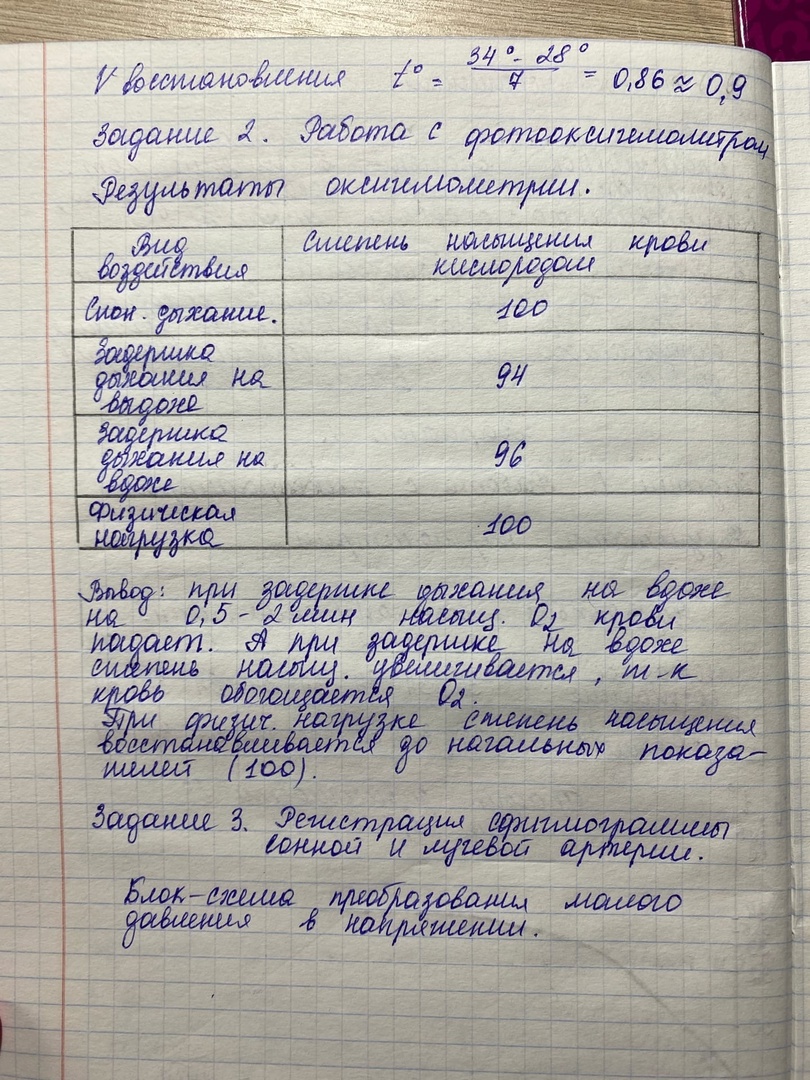 V восстановления t° = 34° - 28° / 7 = 0,86 ≈ 0,9
Задание 2. Работа с фотооксигемометром
Результаты оксигемометрии.
Вид воздействия | Степень насыщения крови кислородом
Спон. дыхание. | 100
Задержка дыхания на выдохе | 94
Задержка дыхания на вдохе | 96
Физическая нагрузка | 100
Вывод: при задержке дыхания на вдохе
на 0,5 - 2 мин насыщ. O2 крови
падает. А при задержке на вдохе
степень насыщ. увеличивается, т-к
кровь обогащается O2.
При физич. нагрузке степень насыщения
восстанавливается до начальных показа-
телей (100).
Задание 3. Регистрация сфигмограммы
сонной и лучевой артерии.
Блок-схема преобразования малого
давления в напряжении.